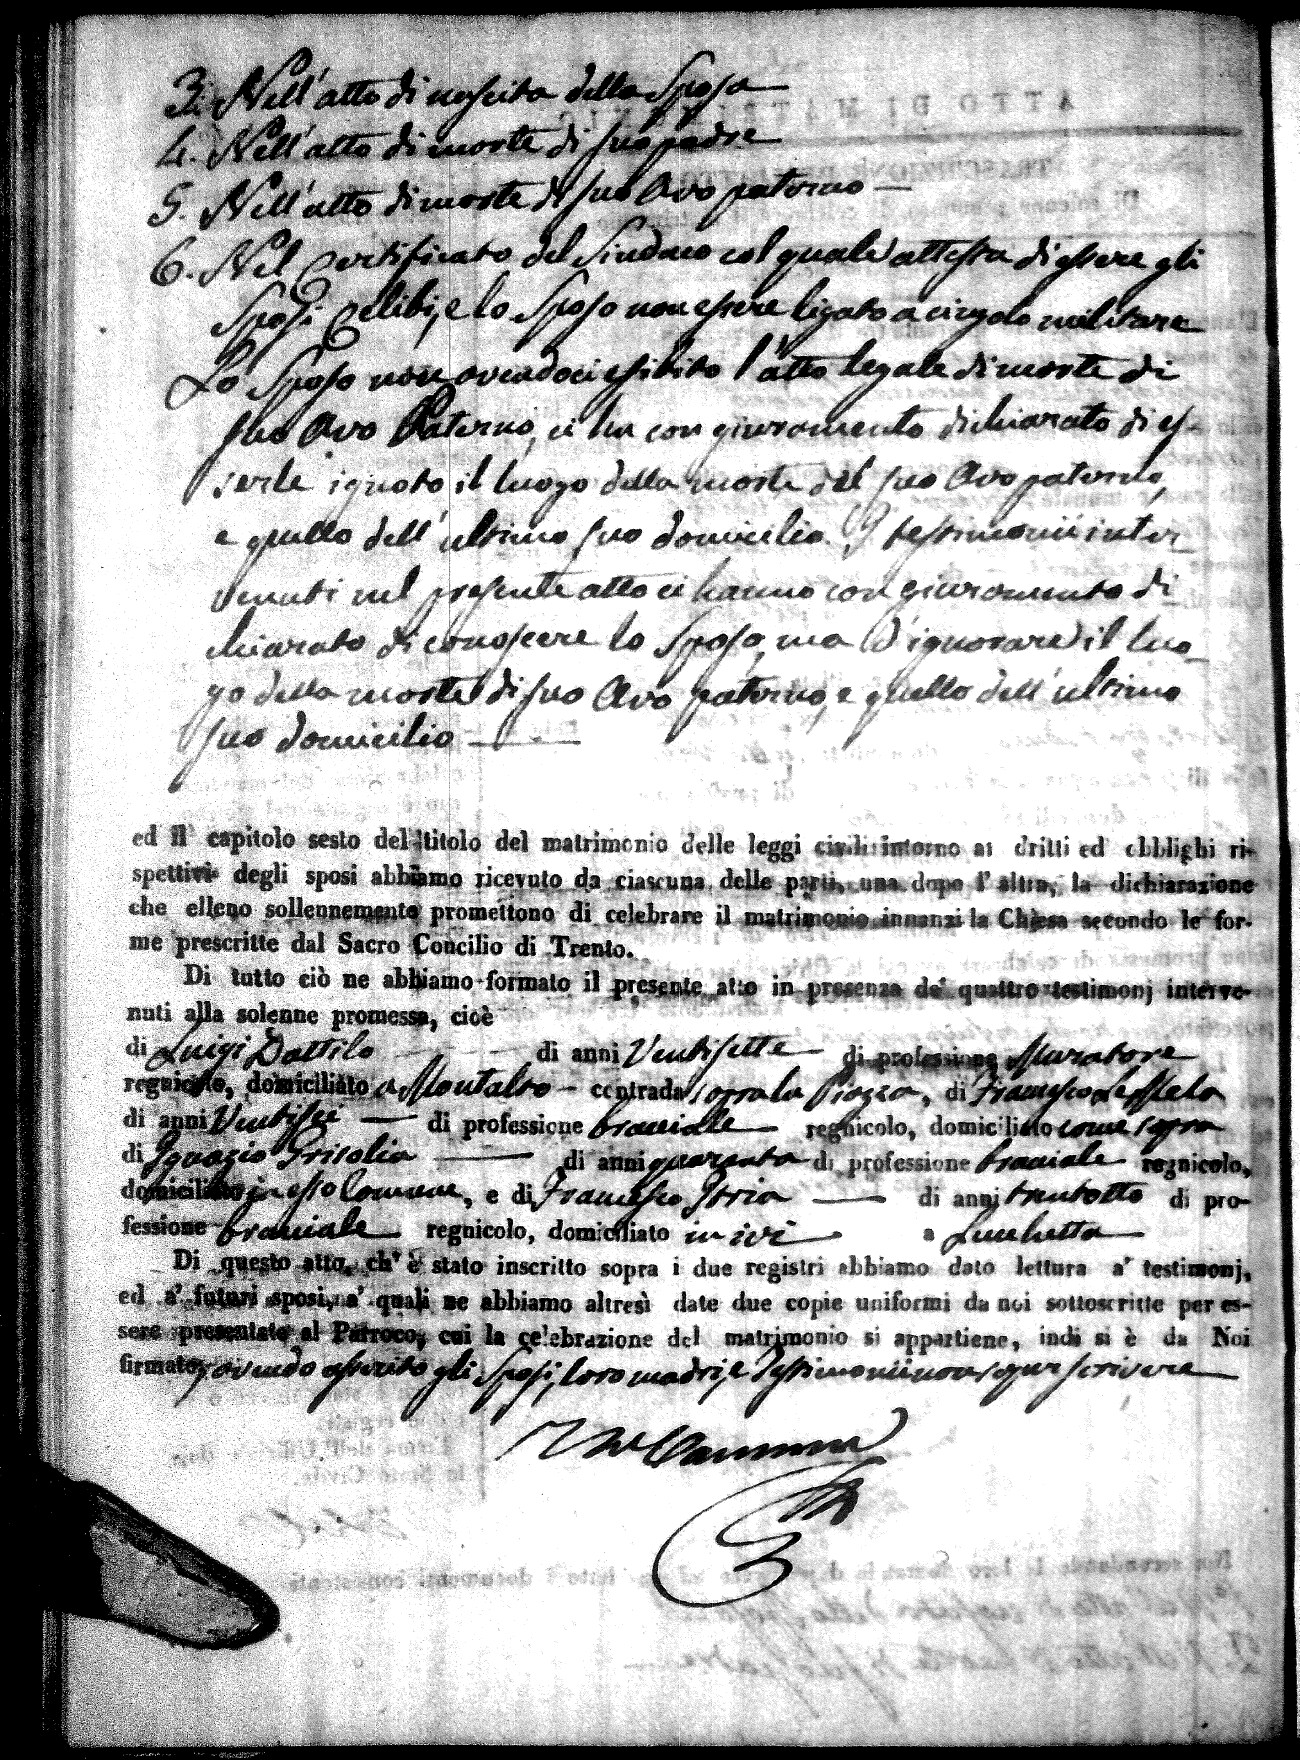 3. Nell'atto di nascita della Sposa
4. Nell'atto di morte di suo padre
5. Nell'atto di morte di suo Avo paterno —
6. Nel Certificato del Sindaco col quale attesta di essere gli
Sposi Celibi, e lo Sposo non essere ligato a cingolo militare
Lo Sposo non avendoci esibito l'atto legale di morte di
suo Avo Paterno, ci ha con giuramento dichiarato di es-
serle ignoto il luogo della morte del suo Avo paterno,
e quello dell'ultimo suo domicilio. I testimonii inter-
venuti nel presente atto ci hanno con giuramento di
chiarato di conoscere lo Sposo, ma d'ignorare il luo-
go della morte di suo Avo paterno, e quello dell'ultimo
suo domicilio —
ed il capitolo sesto del titolo del matrimonio delle leggi civili intorno ai dritti ed obblighi ri-
spettivi degli sposi abbiamo ricevuto da ciascuna delle parti, una dopo l'altra, la dichiarazione
che elleno sollennemente promettono di celebrare il matrimonio innanzi la Chiesa secondo le for-
me prescritte dal Sacro Concilio di Trento.
Di tutto ciò ne abbiamo formato il presente atto in presenza de' quattro testimonj interve-
nuti alla solenne promessa, cioè
di Luigi Dattilo di anni Ventisette di professione Muratore
regnicolo, domiciliato a Montalto contrada sopra la Piazza, di Francesco
di anni Ventisei di professione bracciale regnicolo, domiciliato come sopra
di Ignazio Grisolia di anni quaranta di professione bracciale regnicolo,
domiciliato in esso Comune, e di Francesco Ioria di anni trentotto di pro-
fessione bracciale regnicolo, domiciliato in ivi a Lucchetta
Di questo atto, ch'è stato inscritto sopra i due registri abbiamo dato lettura a' testimonj,
ed a' futuri sposi, a' quali ne abbiamo altresì date due copie uniformi da noi sottoscritte per es-
sere presentate al Parroco, cui la celebrazione del matrimonio si appartiene, indi si è da Noi
firmato, avendo asserito gli Sposi, loro madri, e Testimonii non saper scrivere